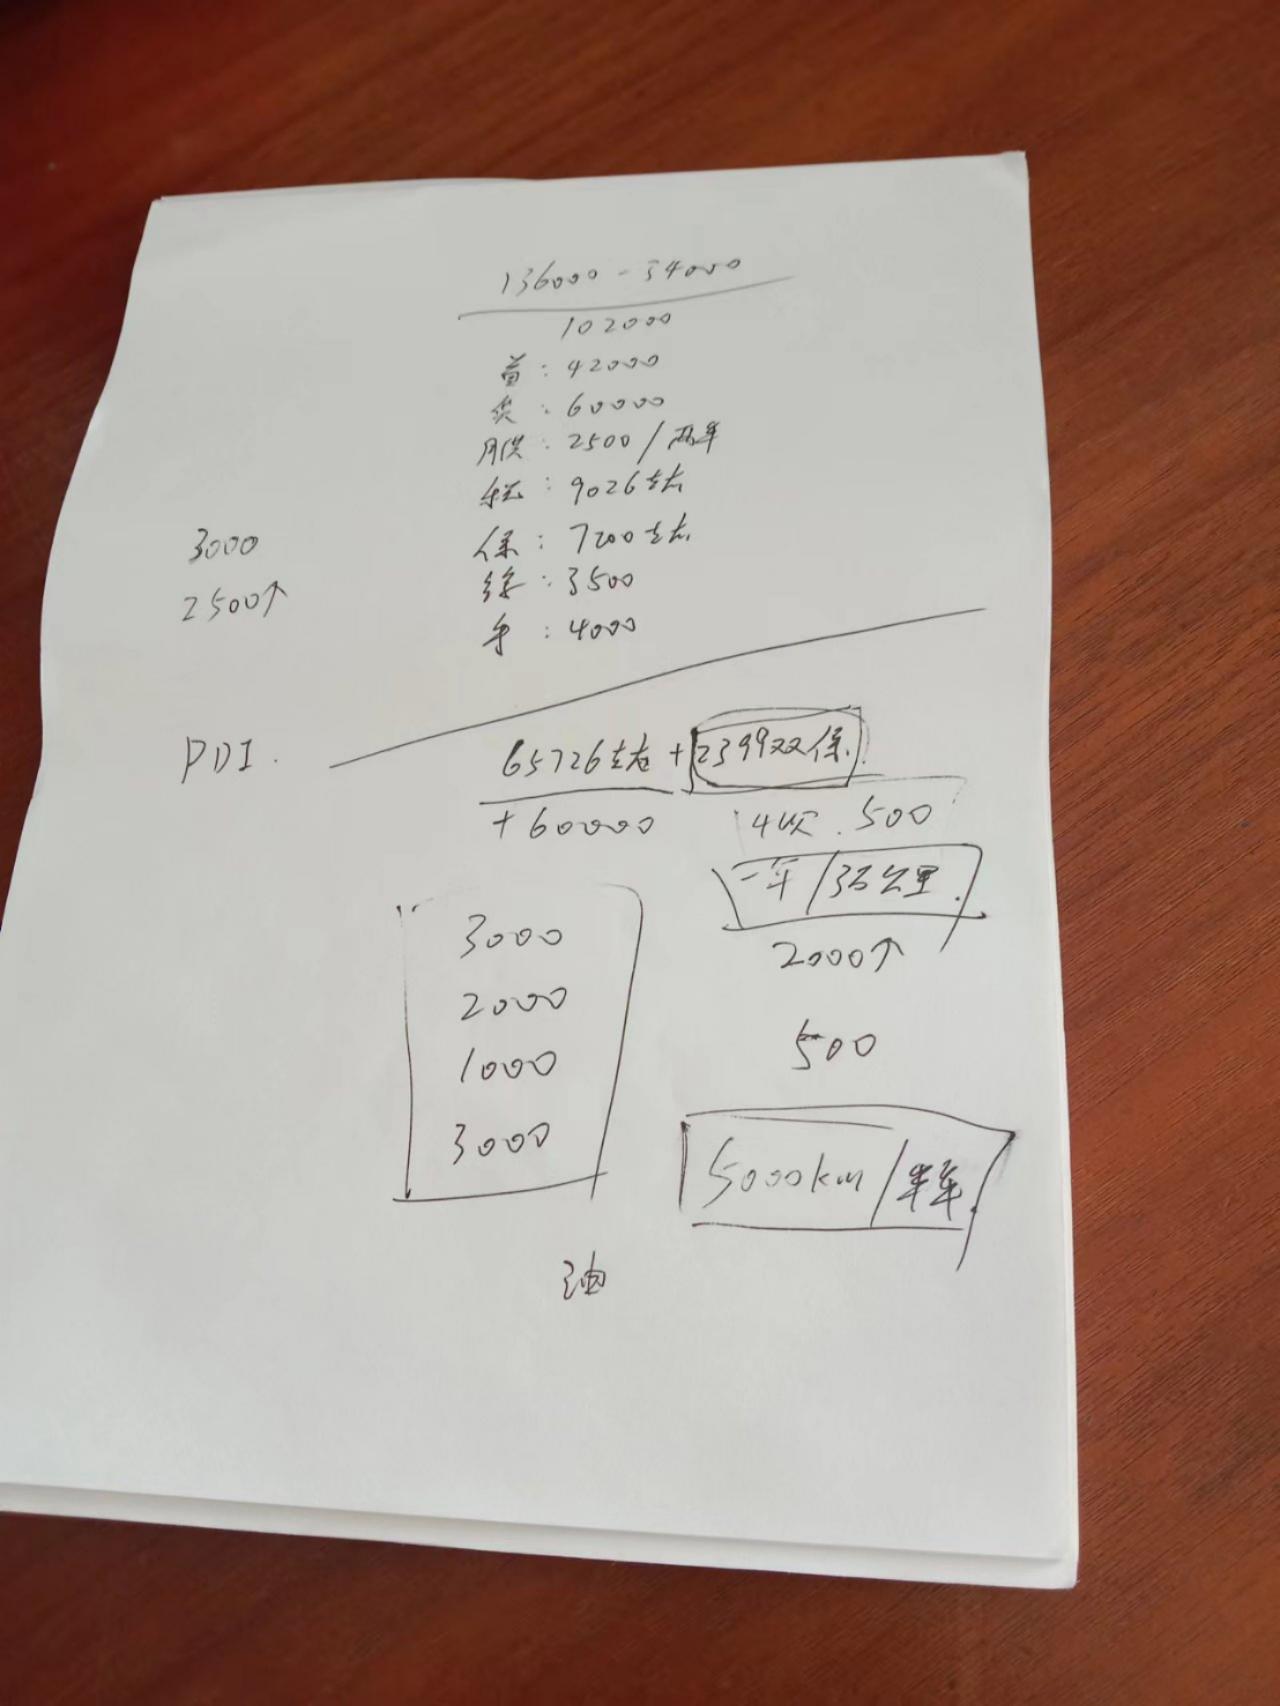 136000-34000
102000
首：42000
贷：60000
月供：2500/两年
税：9026左右
保：7200左右
3000
综：3500
2500↑
手：4000
PDI.
65726左右+2399双保.
+60000
4次.500
一年/3万公里.
3000
2000↑
2000
500
1000
3000
5000km/半年.
油